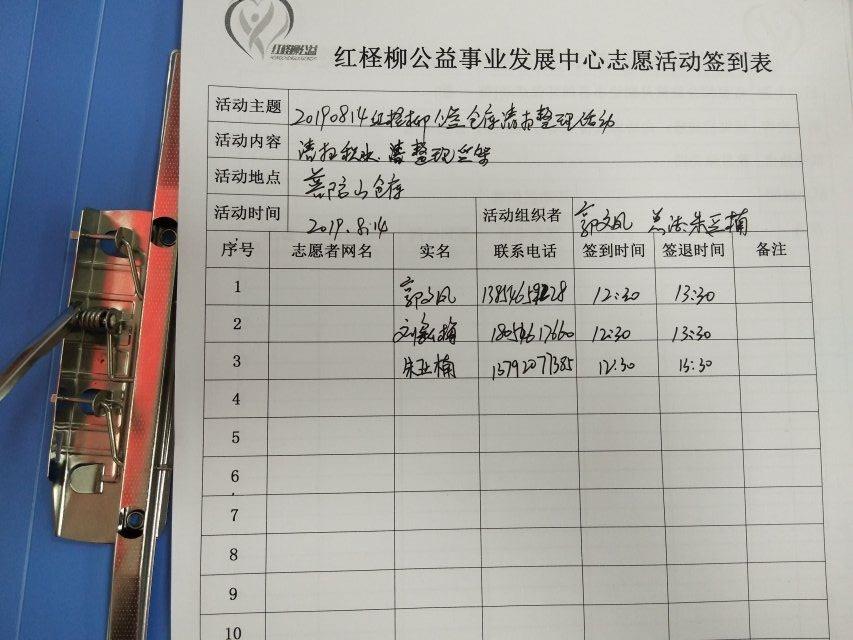 红柽柳公益
红柽柳公益事业发展中心志愿活动签到表
活动主题 20190814红柽柳公益仓库清扫整理活动
活动内容 清扫积水 整理货架
活动地点 仓库
活动时间 2019.8.14 活动组织者 郭文凤 朱亚楠
序号 志愿者网名 实名 联系电话 签到时间 签退时间 备注
1 郭文凤 12:30 13:30
2 12:30 13:30
3 朱亚楠 13792077385 12:30 13:30
4
5
6
7
8
9
10